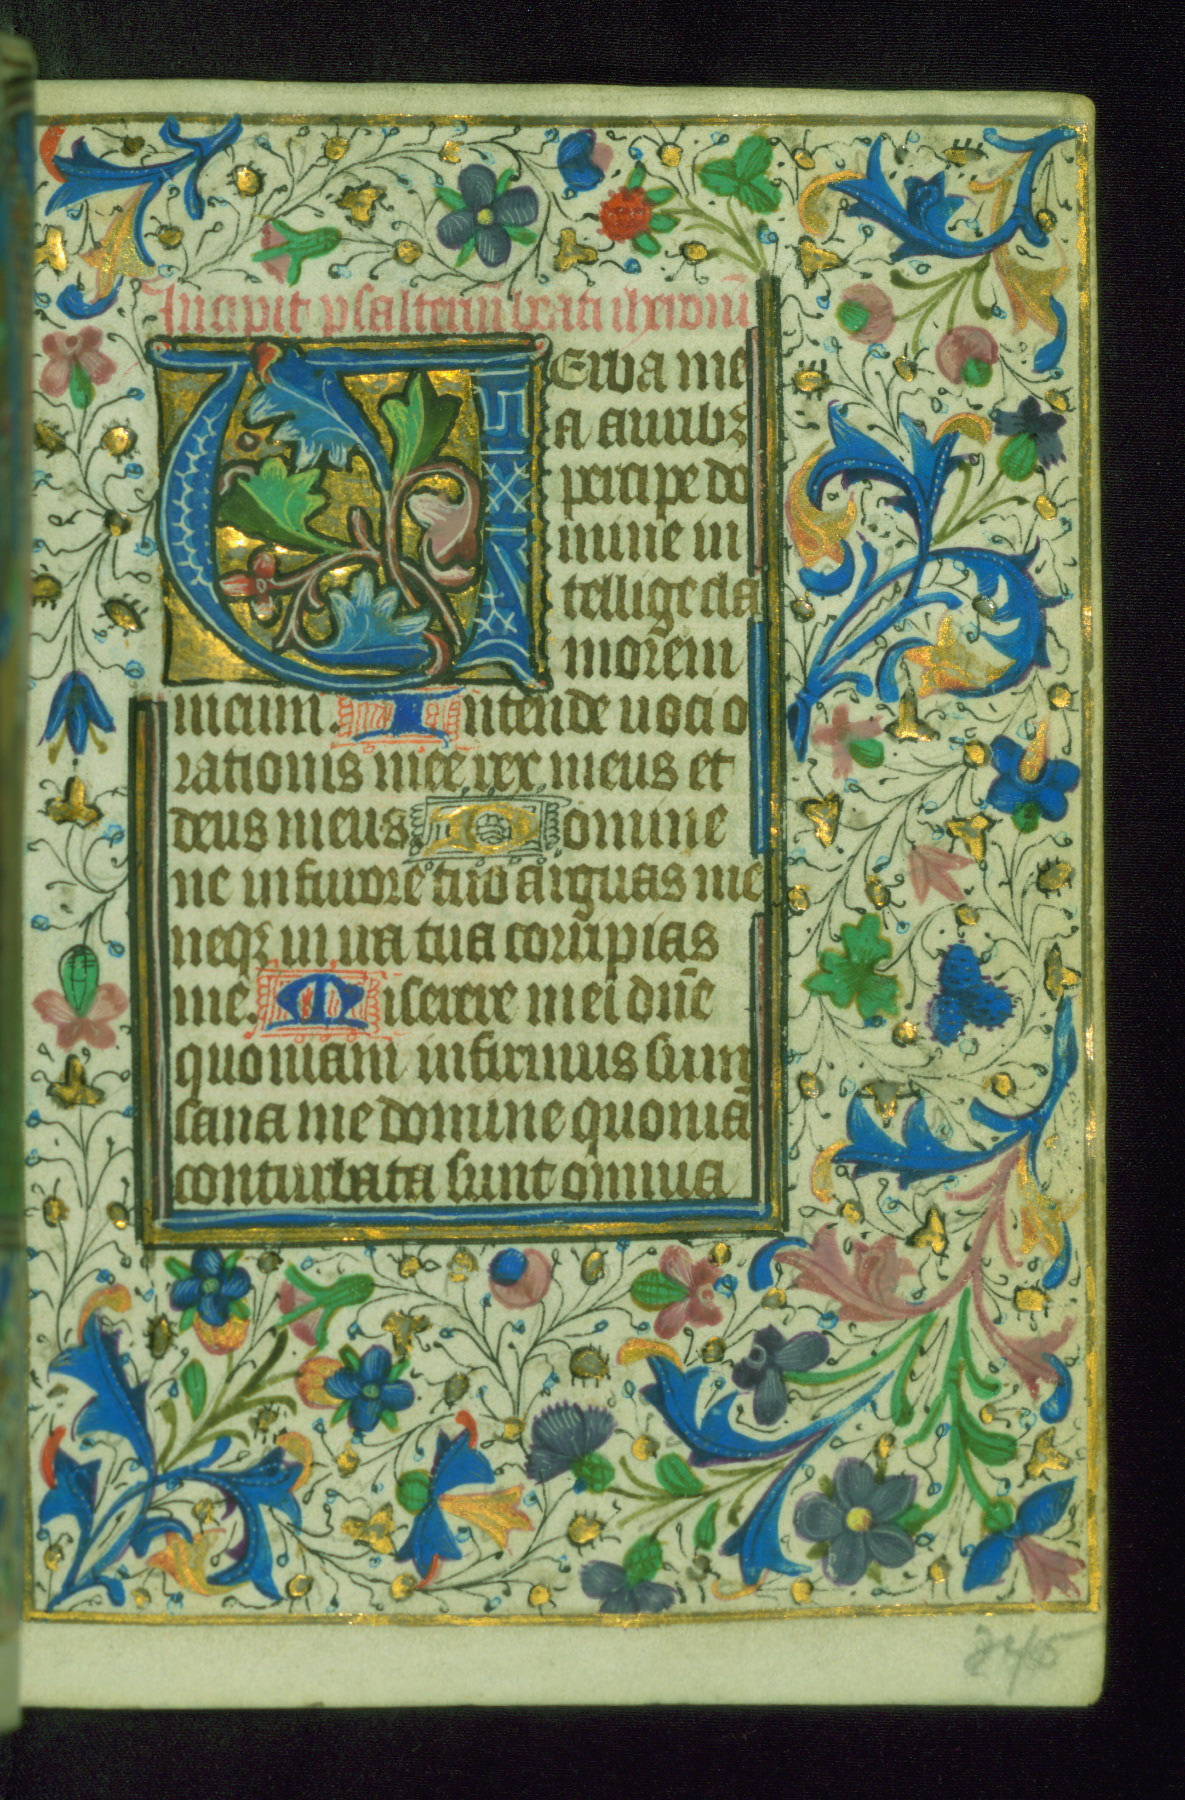 Incipit psalteriū beati iheronī
VErba me
a auribꝫ
percipe do
mine in
tellige cla
morem
meum. Intende uoci o
rationis mee rex meus et
deus meus Domine
ne in furore tuo arguas me
neqꝫ in ira tua corripias
me. Miserere mei dn̄e
quoniam infirmus sum
sana me domine quoniā
conturbata sunt omnia